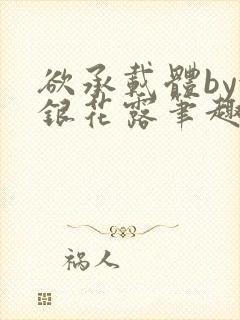 欲承载體by
銀花露筆趣
祸人